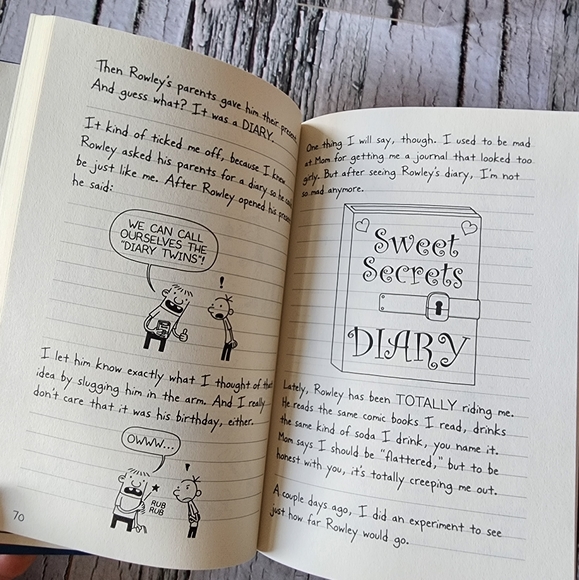 Then Rowley's parents gave him their present.
And guess what? It was a DIARY.
It kind of ticked me off, because I knew
Rowley asked his parents for a diary so he could
be just like me. After Rowley opened his present,
he said:
WE CAN CALL
OURSELVES THE
"DIARY TWINS"!
!
I let him know exactly what I thought of that
idea by slugging him in the arm. And I really
don't care that it was his birthday, either.
OWWW...
!
RUB
RUB
70
One thing I will say, though. I used to be mad
at Mom for getting me a journal that looked too
girly. But after seeing Rowley's diary, I'm not
so mad anymore.
Sweet
Secrets
DIARY
Lately, Rowley has been TOTALLY riding me.
He reads the same comic books I read, drinks
the same kind of soda I drink, you name it.
Mom says I should be "flattered," but to be
honest with you, it's totally creeping me out.
A couple days ago, I did an experiment to see
just how far Rowley would go.